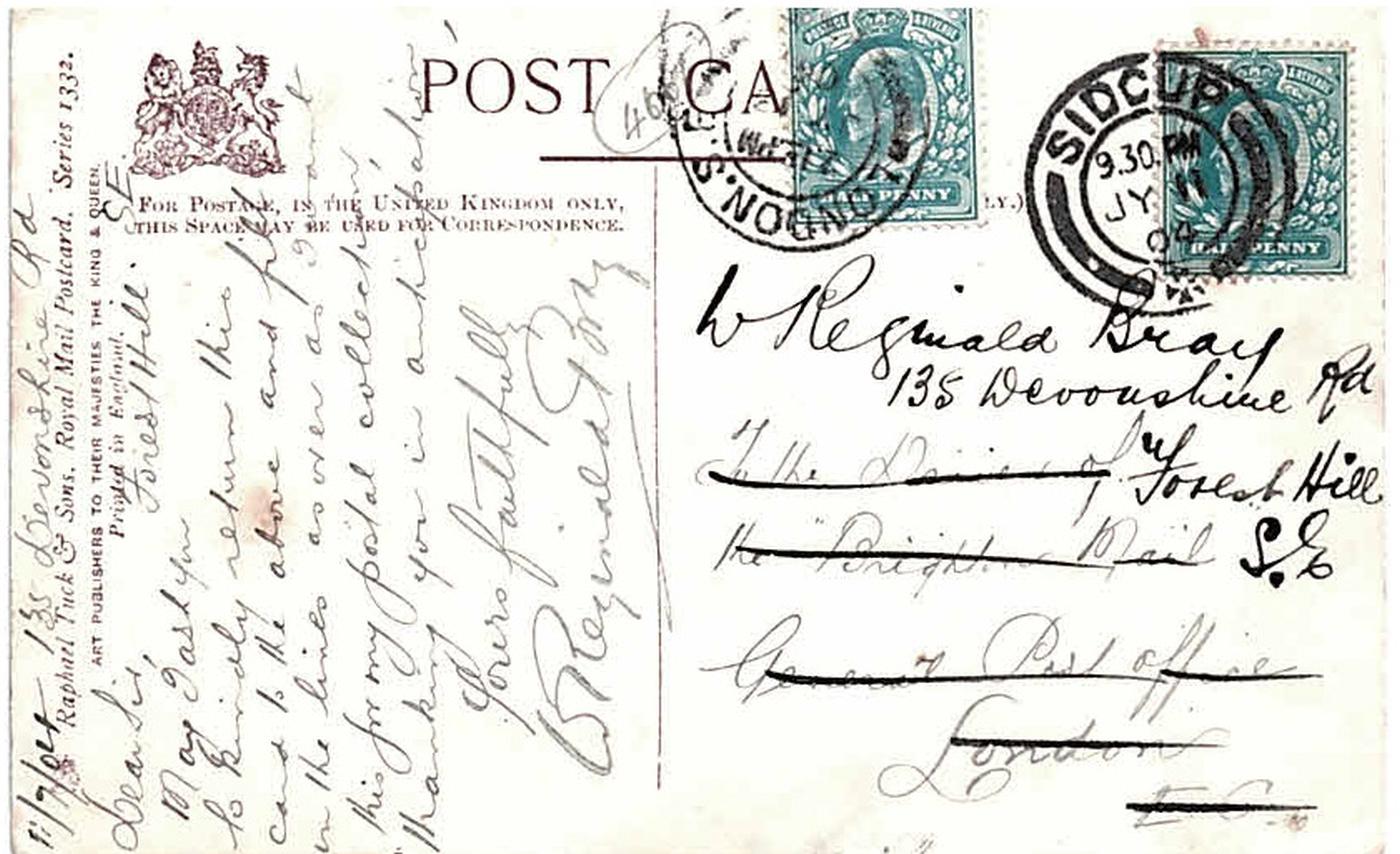 POST CARD
46
FOR POSTAGE, IN THE UNITED KINGDOM ONLY,
THIS SPACE MAY BE USED FOR CORRESPONDENCE.
LY.)
Raphael Tuck & Sons. Royal Mail Postcard. Series 1332.
ART PUBLISHERS TO THEIR MAJESTIES THE KING & QUEEN.
Printed in England.
11/7/04 135 Devonshire Rd
Forest Hill. S.E.
Dear Sir,
May I ask you
to kindly return this
card to the above and fill
in the lines as over as I want
this for my postal collection,
Thanking you in anticipation
Yours faithfully
W Reginald Bray
LONDON. S.E.
POSTAGE REVENUE
HALF PENNY
SIDCUP
9.30.PM
JY 11
04
HALF PENNY
W Reginald Bray
135 Devonshire Rd
To the Driver of
Forest Hill
the Brighton Mail
S.E
General Post Office
London
E.C.